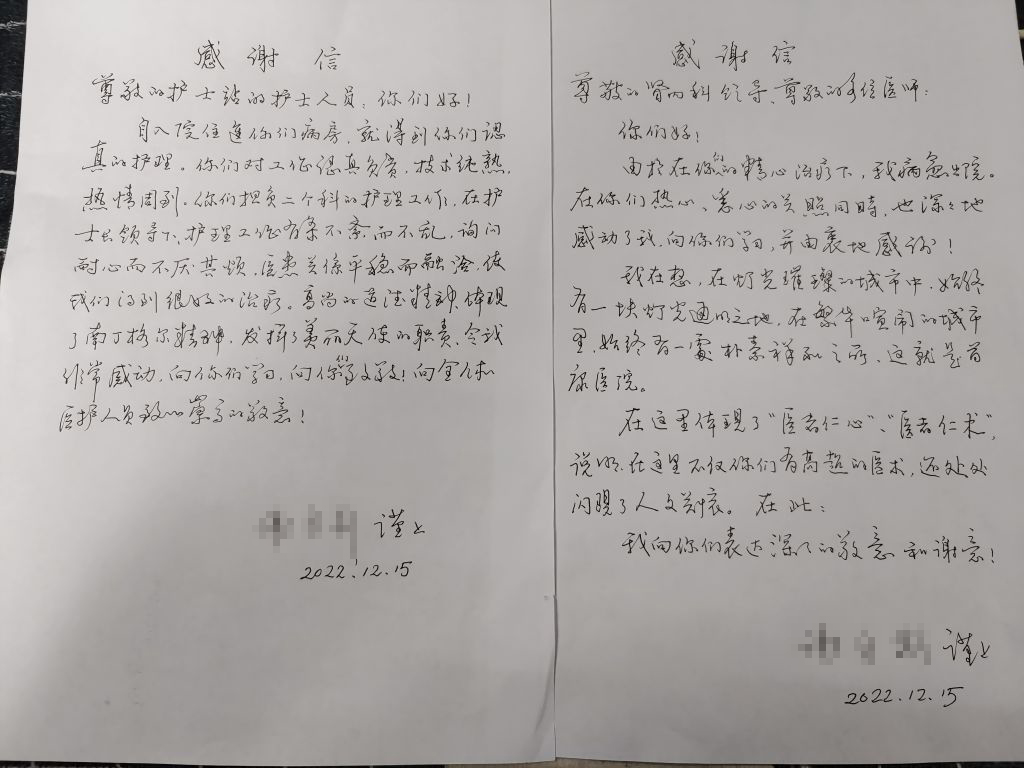 感谢信
尊敬的护士站的护士人员，你们好！
自入院住进你们病房，就得到你们认
真的护理。你们对工作认真负责，技术纯熟，
热情周到。你们担负二个科的护理工作，在护
士长领导下，护理工作有条不紊而不乱，询问
耐心而不厌其烦，医患关系平稳而融洽，使
我们得到很好的治疗。高尚的道德精神，体现
了南丁格尔精神，发挥了美丽天使的职责，令我
非常感动，向你们学习，向你们致敬！向全体
医护人员致以崇高的敬意！
谨上
2022.12.15
感谢信
尊敬的肾内科领导、尊敬的各位医师：
你们好！
由于在你们的精心治疗下，我病愈出院。
在你们热心、悉心的关照同时，也深深地
感动了我，向你们学习，并由衷地感谢！
我在想，在灯光璀璨的城市中，始终
有一块灯光通明之地，在繁华喧闹的城市
里，始终有一处朴素祥和之所，这就是首
康医院。
在这里体现了“医者仁心”、“医者仁术”，
说明，在这里不仅你们有高超的医术，还处处
闪现了人文关怀。在此：
我向你们表达深深的敬意和谢意！
谨上
2022.12.15